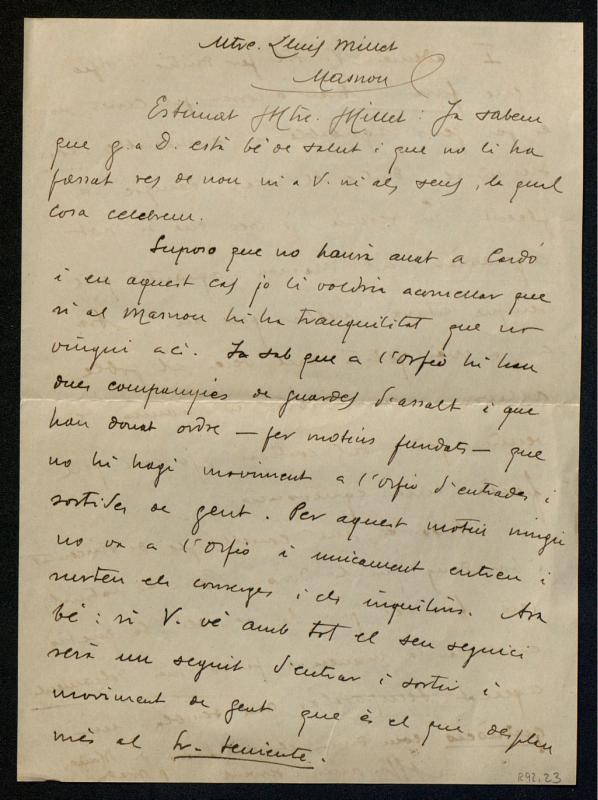 Mtre. Lluis Millet
Masnou
Estimat Mtre. Millet: Ja sabem
que g. a D. està bé de salut i que no li ha
passat res de nou ni a V. ni als seus, la qual
cosa celebrem.
Suposo que no haurà anat a Cardó
i en aquest cas jo li voldria aconsellar que
si al Masnou hi ha tranquilitat que no
vingui ací. Ja sab que a l'Orfeó hi han
dues companyies de guardes d'assalt i que
han donat ordre — per motius fundats — que
no hi hagi moviment a l'Orfeó d'entrades i
sortides de gent. Per aquest motiu ningú
no va a l'Orfeó i unicament entren i
surten els conserges i els inquilins. Ara
bé: si V. vé amb tot el seu seguici
serà un seguit d'entrar i sortir i
moviment de gent que és el que desplau
més al Sr. teniente.
R92.23